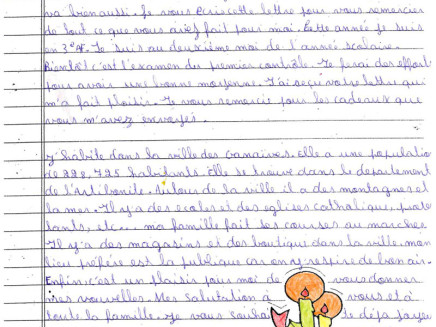 va bien aussi. Je vous écris cette lettre pour vous remercier
de tout ce que vous avez fait pour moi. Cette année je suis
en 3e AF. Je suis au deuxième moi de l'année scolaire.
Bientôt c'est l'examen du premier contrôle. Je ferai des effort
pour avoir une bonne moyenne. J'ai reçu votre lettre qui
m'a fait plaisir. Je vous remercie pour les cadeaux que
vous m'avez envoyés.
J'habite dans la ville des Gonaïves. Elle a une populatio
de 222,725 habitants. Elle se trouve dans le département
de l'Artibonite. Autour de la ville il a des montagnes et
la mer. Il y a des ecoles et des eglises catholique, prote
tants, etc... ma famille fait ses courses au marcher
Il y'a des magasins et des boutique dans la ville. mon
lieu préféré est la publique car on y respire de bon air.
Enfin, c'est un plaisir pour moi de vous donner
mes nouvelles. Mes Salutation à vous et à
toute la famille. Je vous souha de déjà joyeu